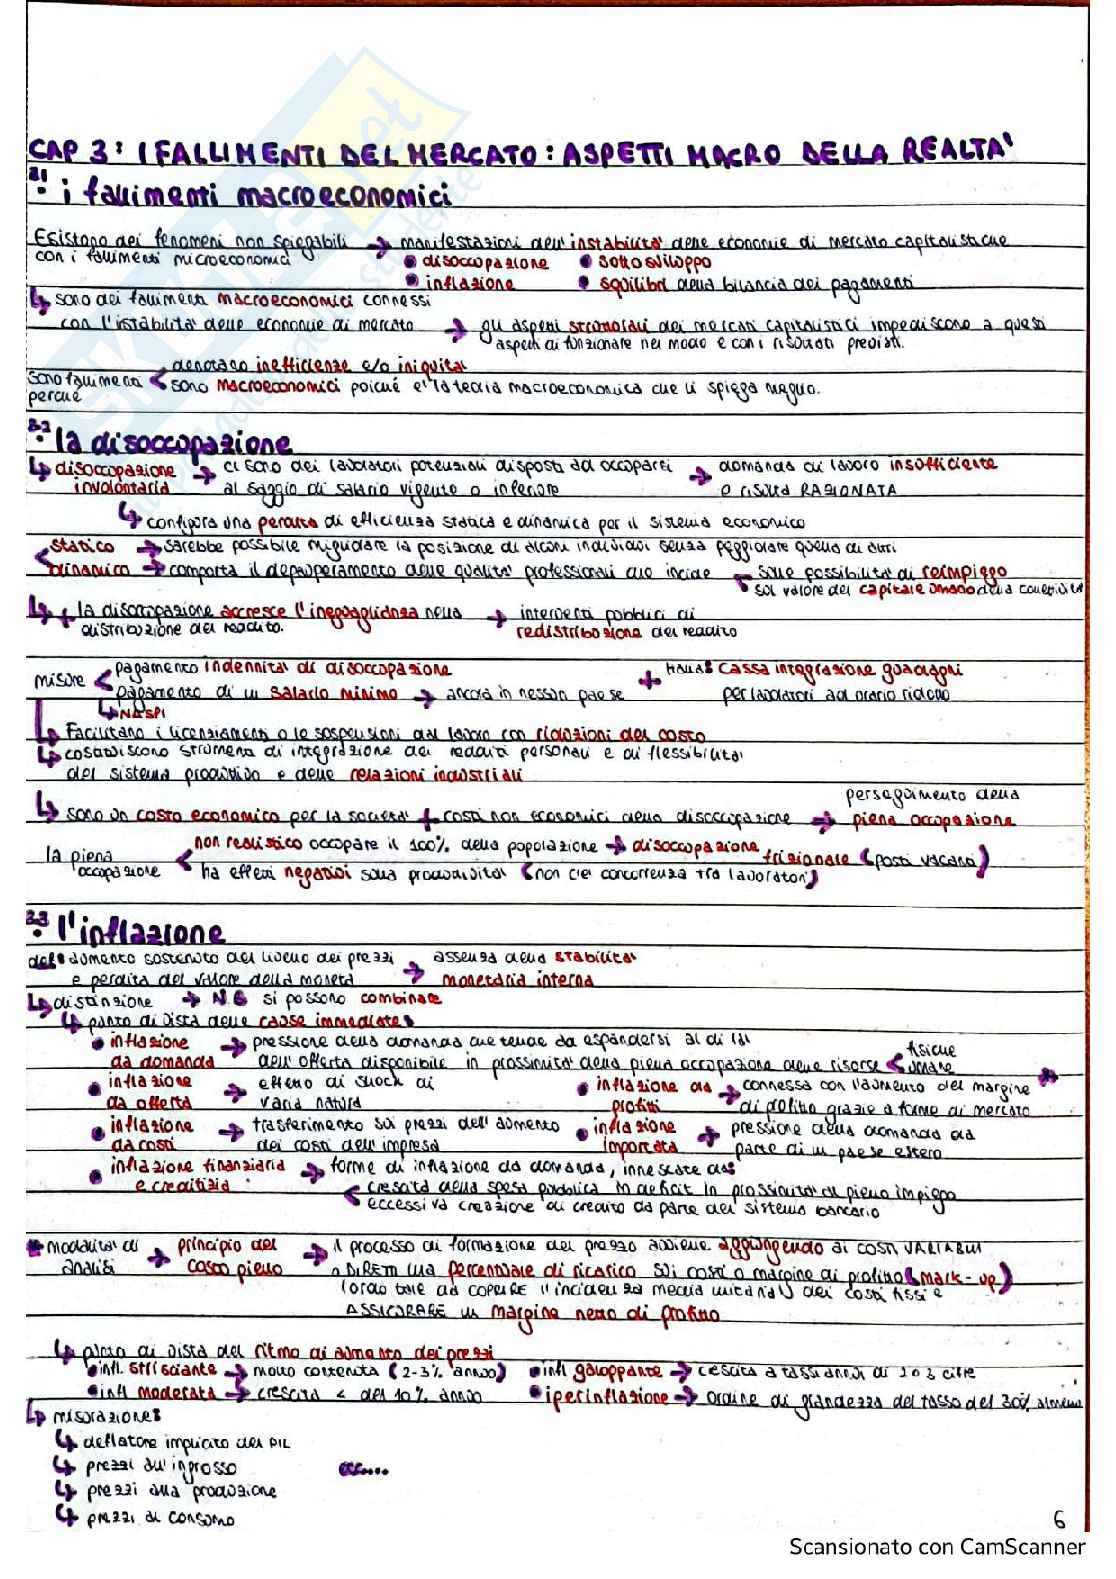 CAP 3: I FALLIMENTI DEL MERCATO: ASPETTI MACRO DELLA REALTA'
3.1 i fallimenti macroeconomici
Esistono dei fenomeni non spiegabili → manifestazioni dell'instabilità delle economie di mercato capitalistiche
con i fallimenti microeconomici • disoccupazione • sottosviluppo
• inflazione • squilibri della bilancia dei pagamenti
↳ sono dei fallimenti macroeconomici connessi
con l'instabilità delle economie di mercato → gli aspetti strutturali dei mercati capitalistici impediscono a questi
aspetti di funzionare nei modo e con i risultati previsti.
denotano inefficienze e/o iniquità
sono fallimenti < sono macroeconomici poiché e' la teoria macroeconomica che li spiega meglio.
perché
3.2 la disoccupazione
↳ disoccupazione → ci sono dei lavoratori potenziali disposti ad occuparsi → domanda di lavoro insufficiente
involontaria al saggio di salario vigente o inferiore e risulta RAZIONATA
↳ configura una perdita di efficienza statica e dinamica per il sistema economico
statico → sarebbe possibile migliorare la posizione di alcuni individui senza peggiorare quella di altri
dinamico → comporta il depauperamento delle qualità professionali che incide < sulle possibilità di reimpiego
sul valore del capitale umano della collettività
↳ + la disoccupazione accresce l'ineguaglianza nella → interventi pubblici di
distribuzione del reddito. redistribuzione del reddito
misure < pagamento indennità di disoccupazione + Italia: cassa integrazione guadagni
pagamento di un salario minimo → ancora in nessun paese per lavoratori ad orario ridotto
↳ NASPI
↳ Facilitano i licenziamenti o le sospensioni dal lavoro con riduzioni del costo
↳ costituiscono strumenti di integrazione dei redditi personali e di flessibilità
del sistema produttivo e delle relazioni industriali
perseguimento della
↳ sono un costo economico per la società + costi non economici della disoccupazione → piena occupazione
non realistico occupare il 100% della popolazione → disoccupazione frizionale (posti vacanti)
la piena occupazione < ha effetti negativi sulla produttività (non c'è concorrenza tra lavoratori)
3.3 l'inflazione
def: aumento sostenuto del livello dei prezzi → assenza della stabilità
e perdita del valore della moneta monetaria interna
↳ distinzione → N.B si possono combinare
↳ punto di vista delle cause immediate:
• inflazione → pressione della domanda che tende da espandersi al di là
da domanda dell'offerta disponibile in prossimità della piena occupazione delle risorse < fisiche
umane
• inflazione → effetto di shock di • inflazione da → connessa con l'aumento del margine
da offerta varia natura profitti di profitto grazie a forme di mercato
• inflazione → trasferimento sui prezzi dell'aumento • inflazione → pressione della domanda da
da costi dei costi dell'impresa importata parte di un paese estero
• inflazione finanziaria → forme di inflazione da domanda, innescate da:
e creditizia < crescita della spesa pubblica in deficit in prossimità di pieno impiego
eccessiva creazione di credito da parte del sistema bancario
* modalità di → principio del → il processo di formazione del prezzo avviene aggiungendo ai costi VARIABILI
analisi costo pieno o DIRETTI una percentuale di ricarico sui costi o margine di profitto (mark-up)
lordo tale da COPRIRE l'incidenza media unitaria dei costi fissi e
ASSICURARE un margine netto di profitto
↳ punto di vista del ritmo di aumento dei prezzi
• infl. strisciante → molto contenuta (2-3% annuo) • infl galoppante → crescita a tassi annui di 2 o 3 cifre
• infl moderata → crescita < del 10% annuo • iperinflazione → ordine di grandezza del tasso del 300% almeno
↳ misurazione:
↳ deflatore implicito del PIL
↳ prezzi all'ingrosso ecc....
↳ prezzi alla produzione
↳ prezzi al consumo
6
Scansionato con CamScanner